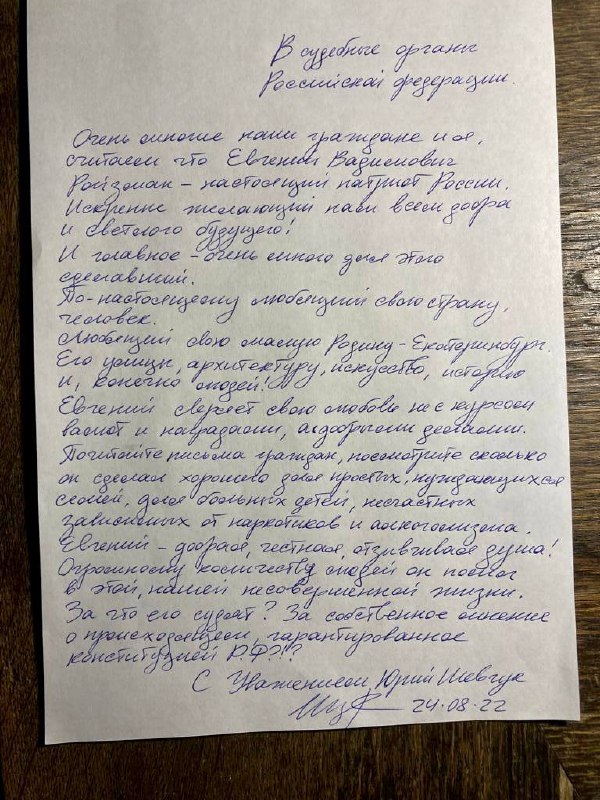 В судебные органы
Российской федерации.
Очень многие наши граждане и я,
считаем что Евгений Вадимович
Ройзман – настоящий патриот России.
Искренне желающий нам всем добра
и светлого будущего!
И главное – очень много для этого
сделавший.
По-настоящему любящий свою страну,
человек.
Любящий свою малую Родину – Екатеринбург.
Его улицы, архитектуру, искусство, историю
и, конечно людей!
Евгений сверяет свою любовь не с курсом
валют и наградами, а добрыми делами.
Почитайте письма граждан, посмотрите сколько
он сделал хорошего для простых, нуждающихся
семей, для больных детей, несчастных
зависимых от наркотиков и алкоголизма.
Евгений – добрая, честная, отзывчивая душа!
Огромному количеству людей он помог
в этой, нашей несовершенной жизни.
За что его судят? За собственное мнение
о происходящем, гарантированное
конституцией Р.Ф?!?
С Уважением, Юрий Шевчук
24.08.22